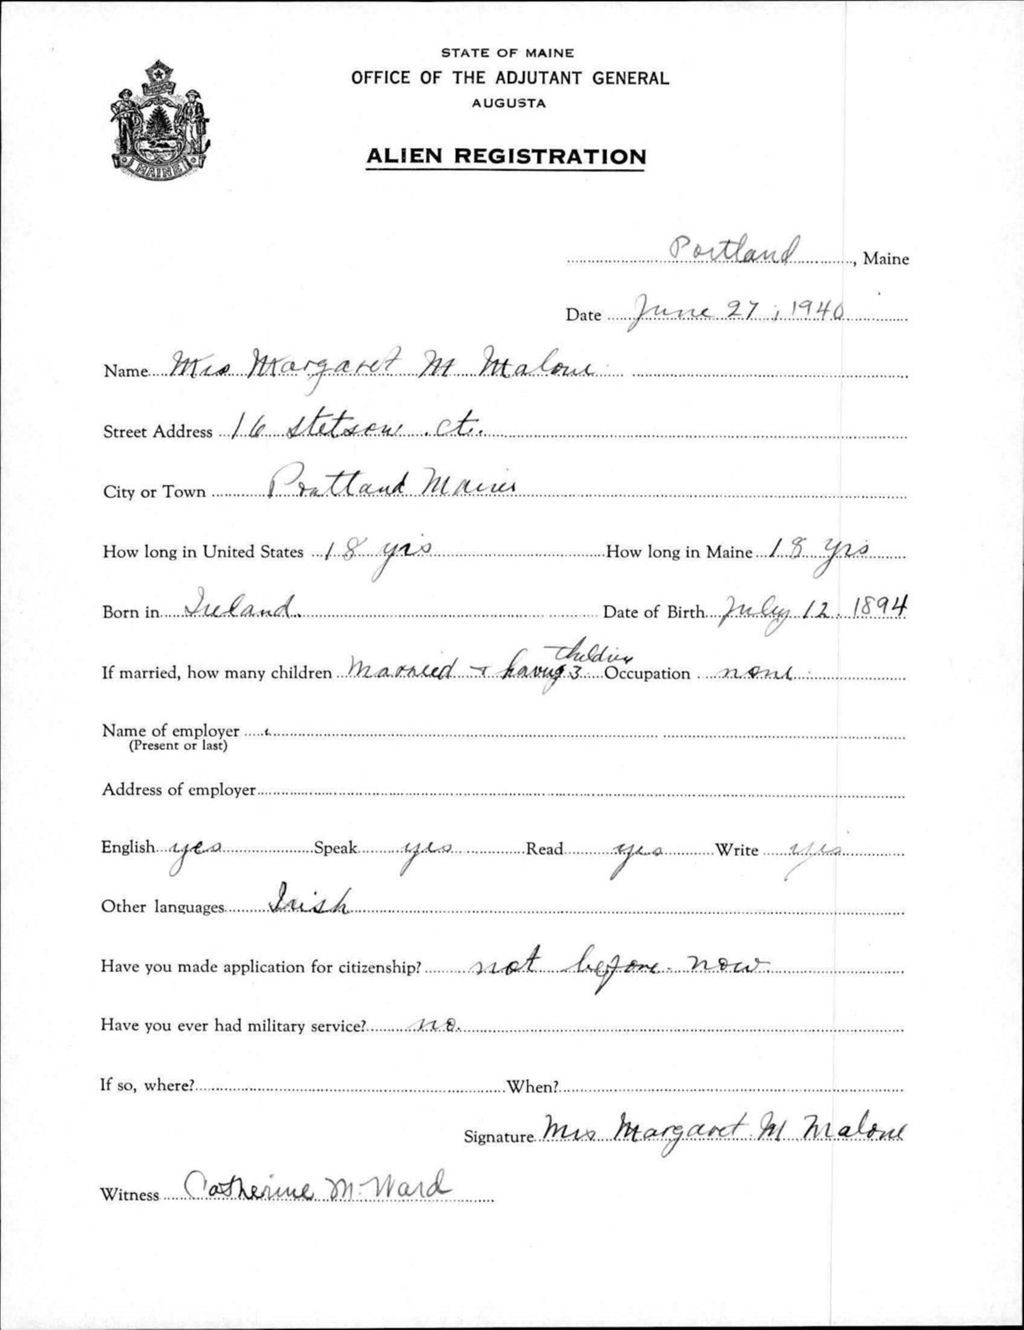 STATE OF MAINE
OFFICE OF THE ADJUTANT GENERAL
AUGUSTA
ALIEN REGISTRATION
MAINE
Portland, Maine
Date June 27, 1940
Name Mrs Margaret M Malone
Street Address 16 Stetson ct.
City or Town Portland Maine
How long in United States 18 yrs How long in Maine 18 yrs
Born in Ireland. Date of Birth July 12. 1894
If married, how many children Married + having 3 children Occupation none
Name of employer
(Present or last)
Address of employer
English yes Speak yes Read yes Write yes
Other languages Irish
Have you made application for citizenship? not before now
Have you ever had military service? no.
If so, where? When?
Signature Mrs Margaret M Malone
Witness Catherine M. Ward